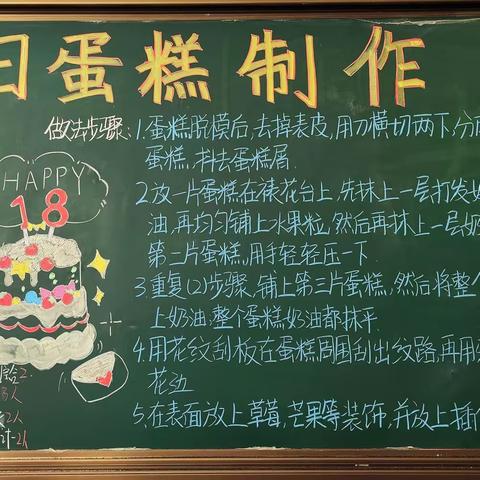 日蛋糕制作
做法步骤:
1.蛋糕脱模后,去掉表皮,用刀横切两下,分
蛋糕,抖去蛋糕屑.
2.放一片蛋糕在裱花台上,先抹上一层打发
油,再均匀铺上水果粒,然后再抹上一层
第二片蛋糕,用手轻轻压一下.
3.重复(2)步骤,铺上第三片蛋糕,然后将整
上奶油.整个蛋糕奶油都抹平.
4.用花纹刮板在蛋糕周围刮出纹路,再用
花边
5.在表面放上草莓,芒果等装饰,并放上插
HAPPY
18
人
2人
计-2人